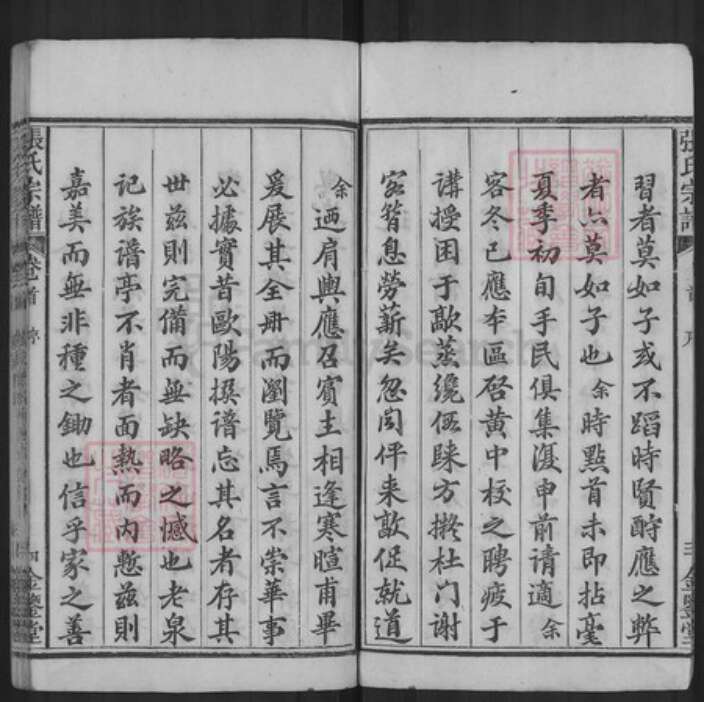 習者莫如子或不蹈時賢酧應之弊
者亦莫如子也余時點首未即拈毫
夏季初旬手民俱集復申前请適余
客冬已應本區啓黄中校之聘疲于
講授困于歊蒸纔伍睐方擬杜门谢
客暫息勞薪矣忽闻伻来敦促就道
余迺肩輿應召賓主相逢寒暄甫畢
爰展其全册而瀏覽焉言不崇華事
必據實昔歐陽撰谱忘其名者存其
世兹則完備而無缺略之憾也老泉
記族谱亭不肖者面熱而内慙兹則
嘉美而無非種之鋤也信乎家之善
張氏宗譜
卷首
金鑒堂